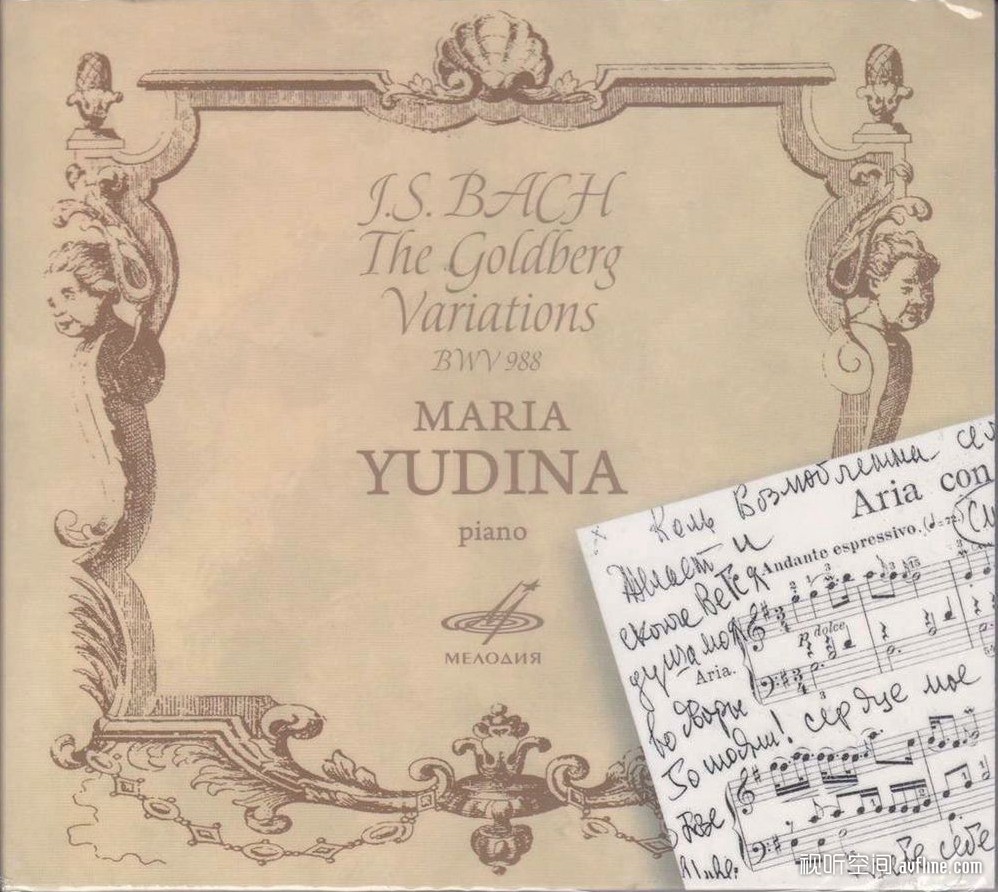 J.S. BACH
The Goldberg
Variations
BWV 988
MARIA
YUDINA
piano
МЕЛОДИЯ
Коль Возлюбленна
Aria con
Желает и
Andante espressivo.
p dolce
душа моя
Aria.
во дворы
сердце мое
视听空间 avfline.com